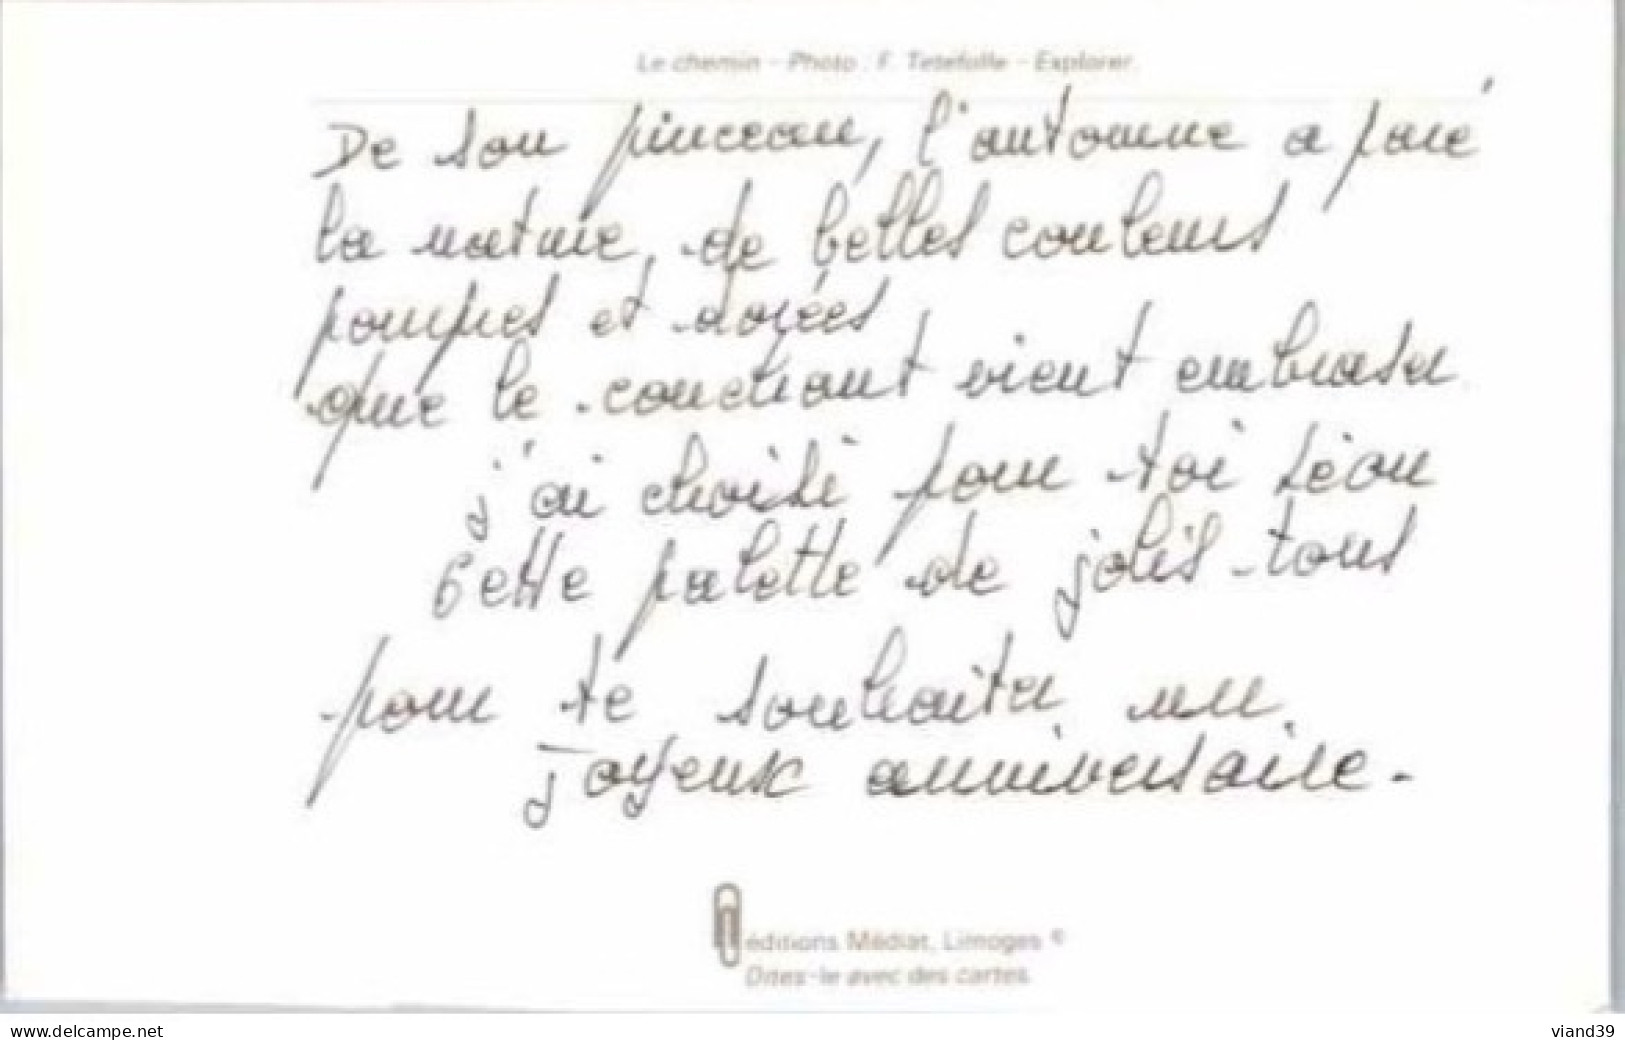 Le chemin - Photo : F. Tetefolle - Explorer.
De son pinceau, l'automne a paré
la nature, de belles couleurs
pourpres et dorées
que le couchant vient embraser
j'ai choisi pour toi Léon
Cette palette de jolis tons
pour te souhaiter un
joyeux anniversaire.
éditions Médiat, Limoges ©
Dites-le avec des cartes
www.delcampe.net
viand39